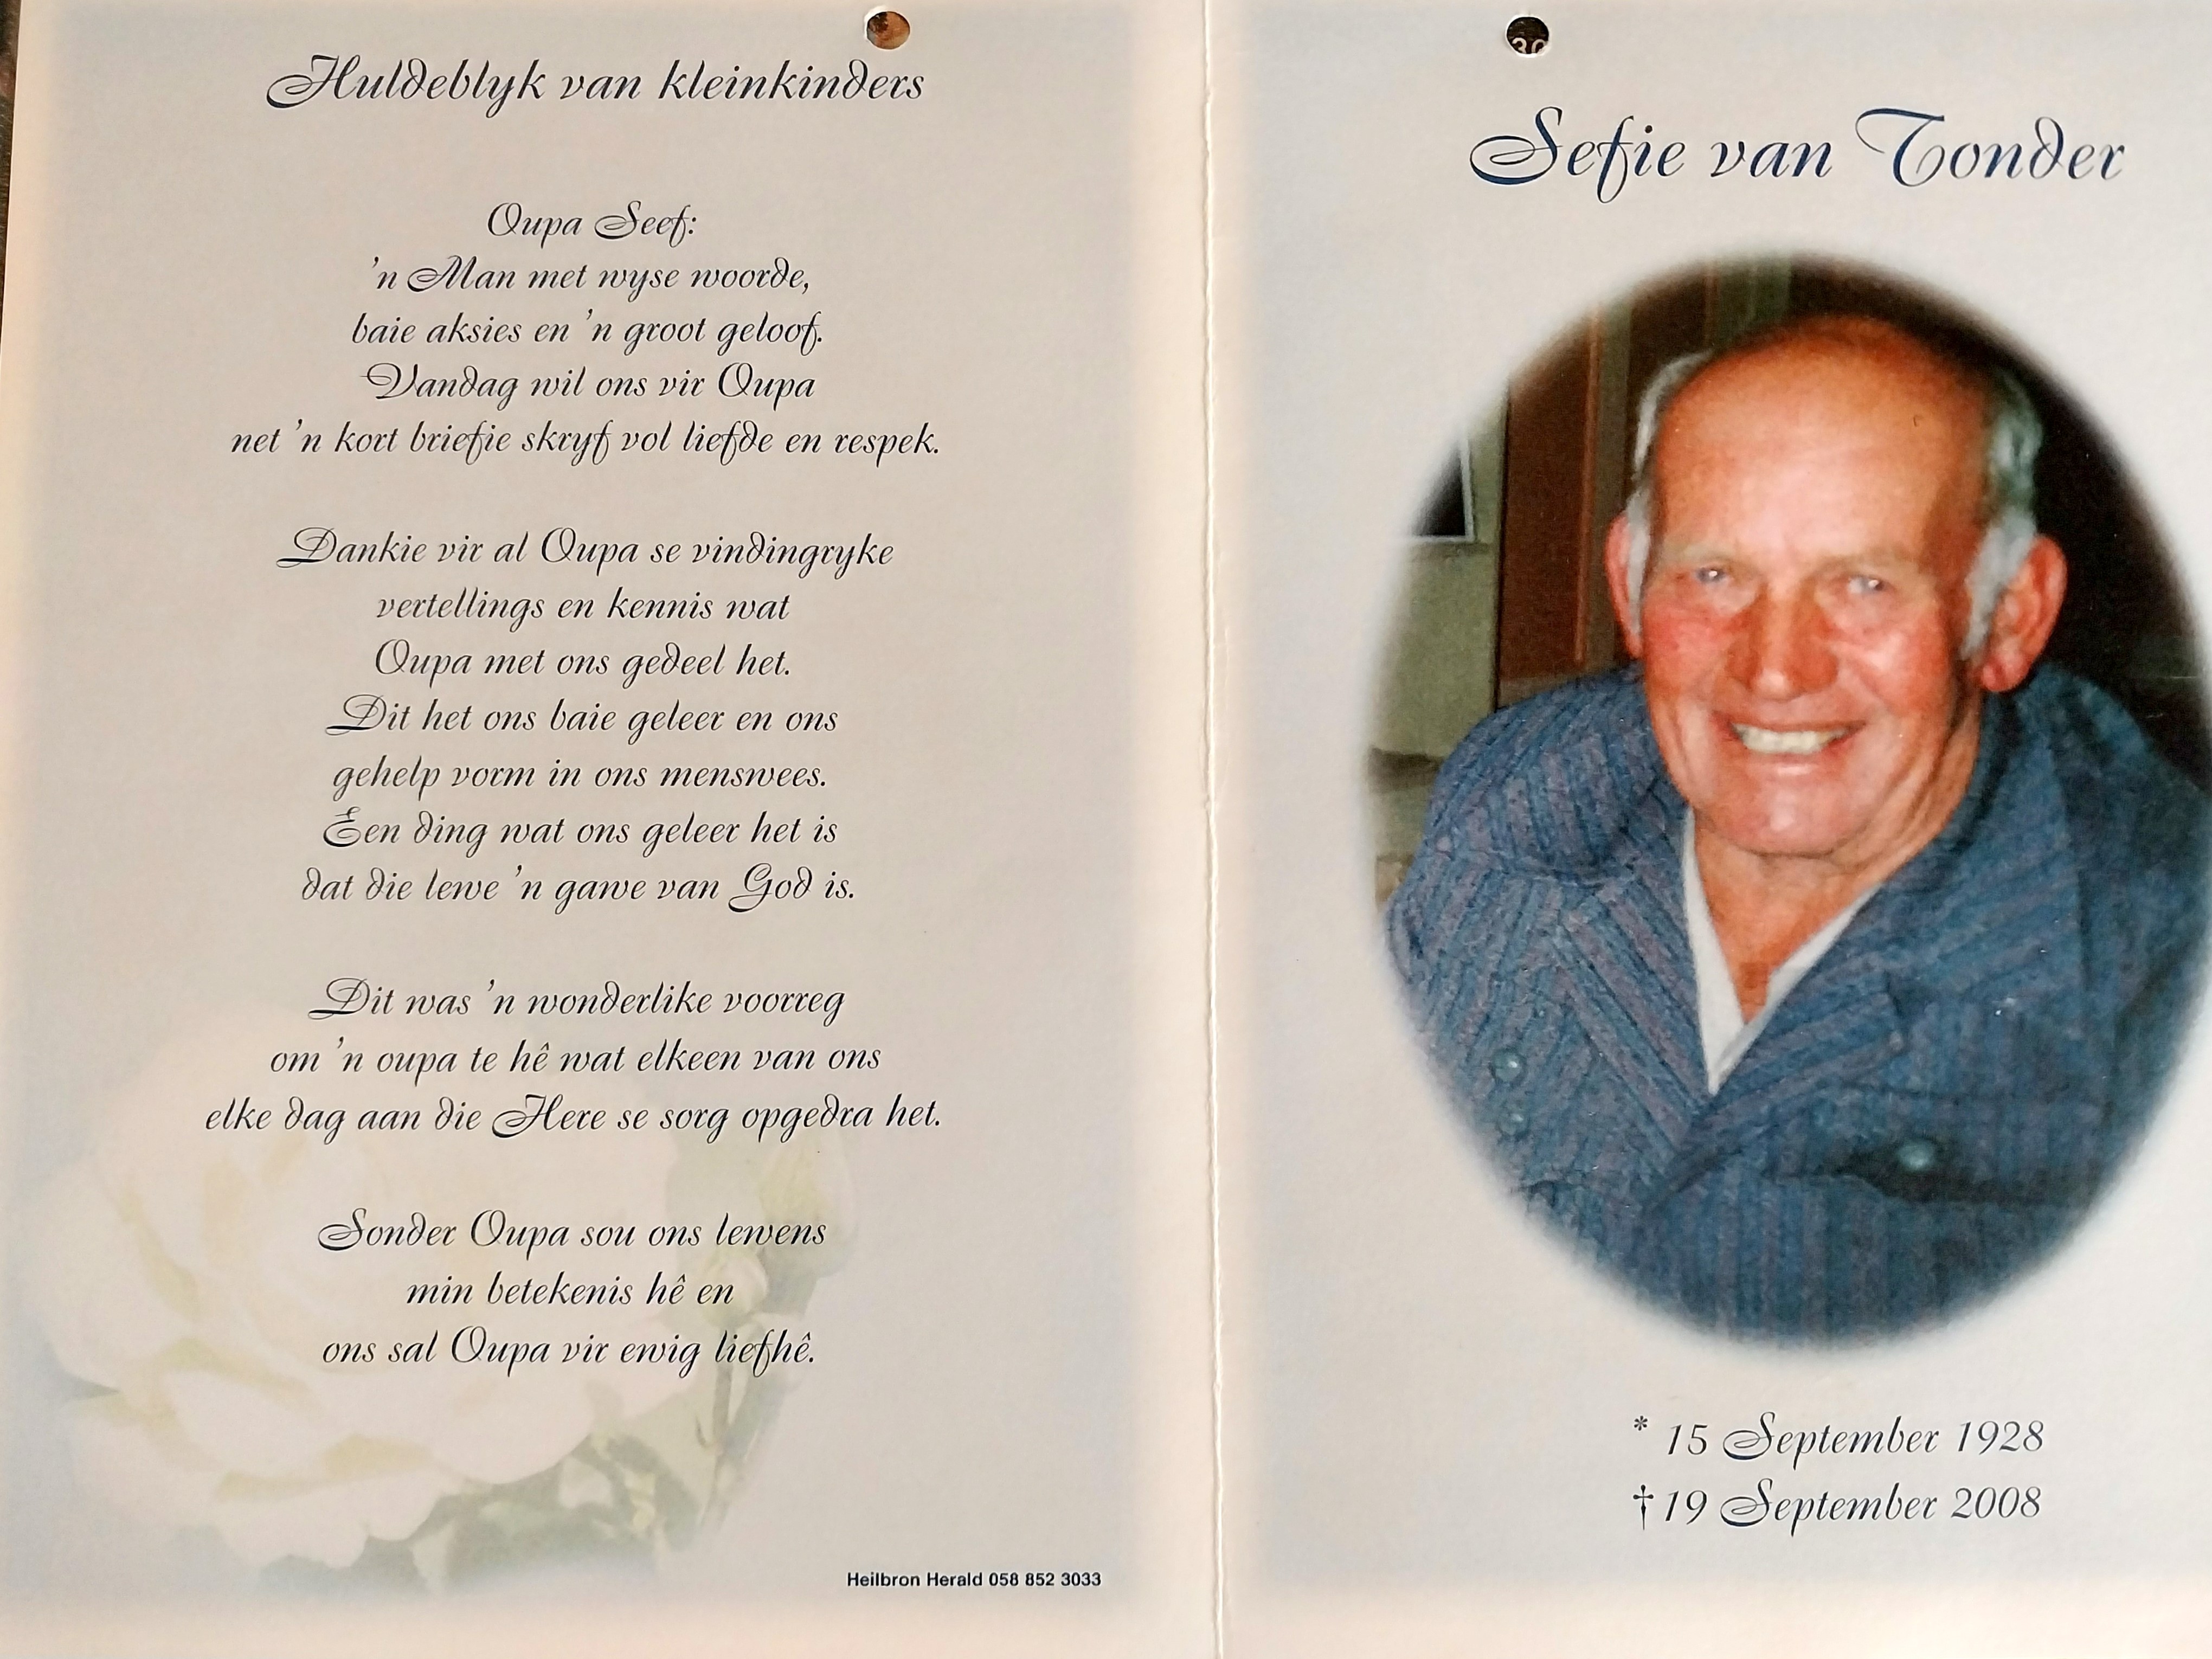 Huldeblyk van kleinkinders
Oupa Seef:
'n Man met wyse woorde,
baie aksies en 'n groot geloof.
Vandag wil ons vir Oupa
net 'n kort briefie skryf vol liefde en respek.
Dankie vir al Oupa se vindingryke
vertellings en kennis wat
Oupa met ons gedeel het.
Dit het ons baie geleer en ons
gehelp vorm in ons menswees.
Een ding wat ons geleer het is
dat die lewe 'n gawe van God is.
Dit was 'n wonderlike voorreg
om 'n oupa te hê wat elkeen van ons
elke dag aan die Here se sorg opgedra het.
Sonder Oupa sou ons lewens
min betekenis hê en
ons sal Oupa vir ewig liefhê.
Heilbron Herald 058 852 3033
30
Sefie van Tonder
* 15 September 1928
† 19 September 2008